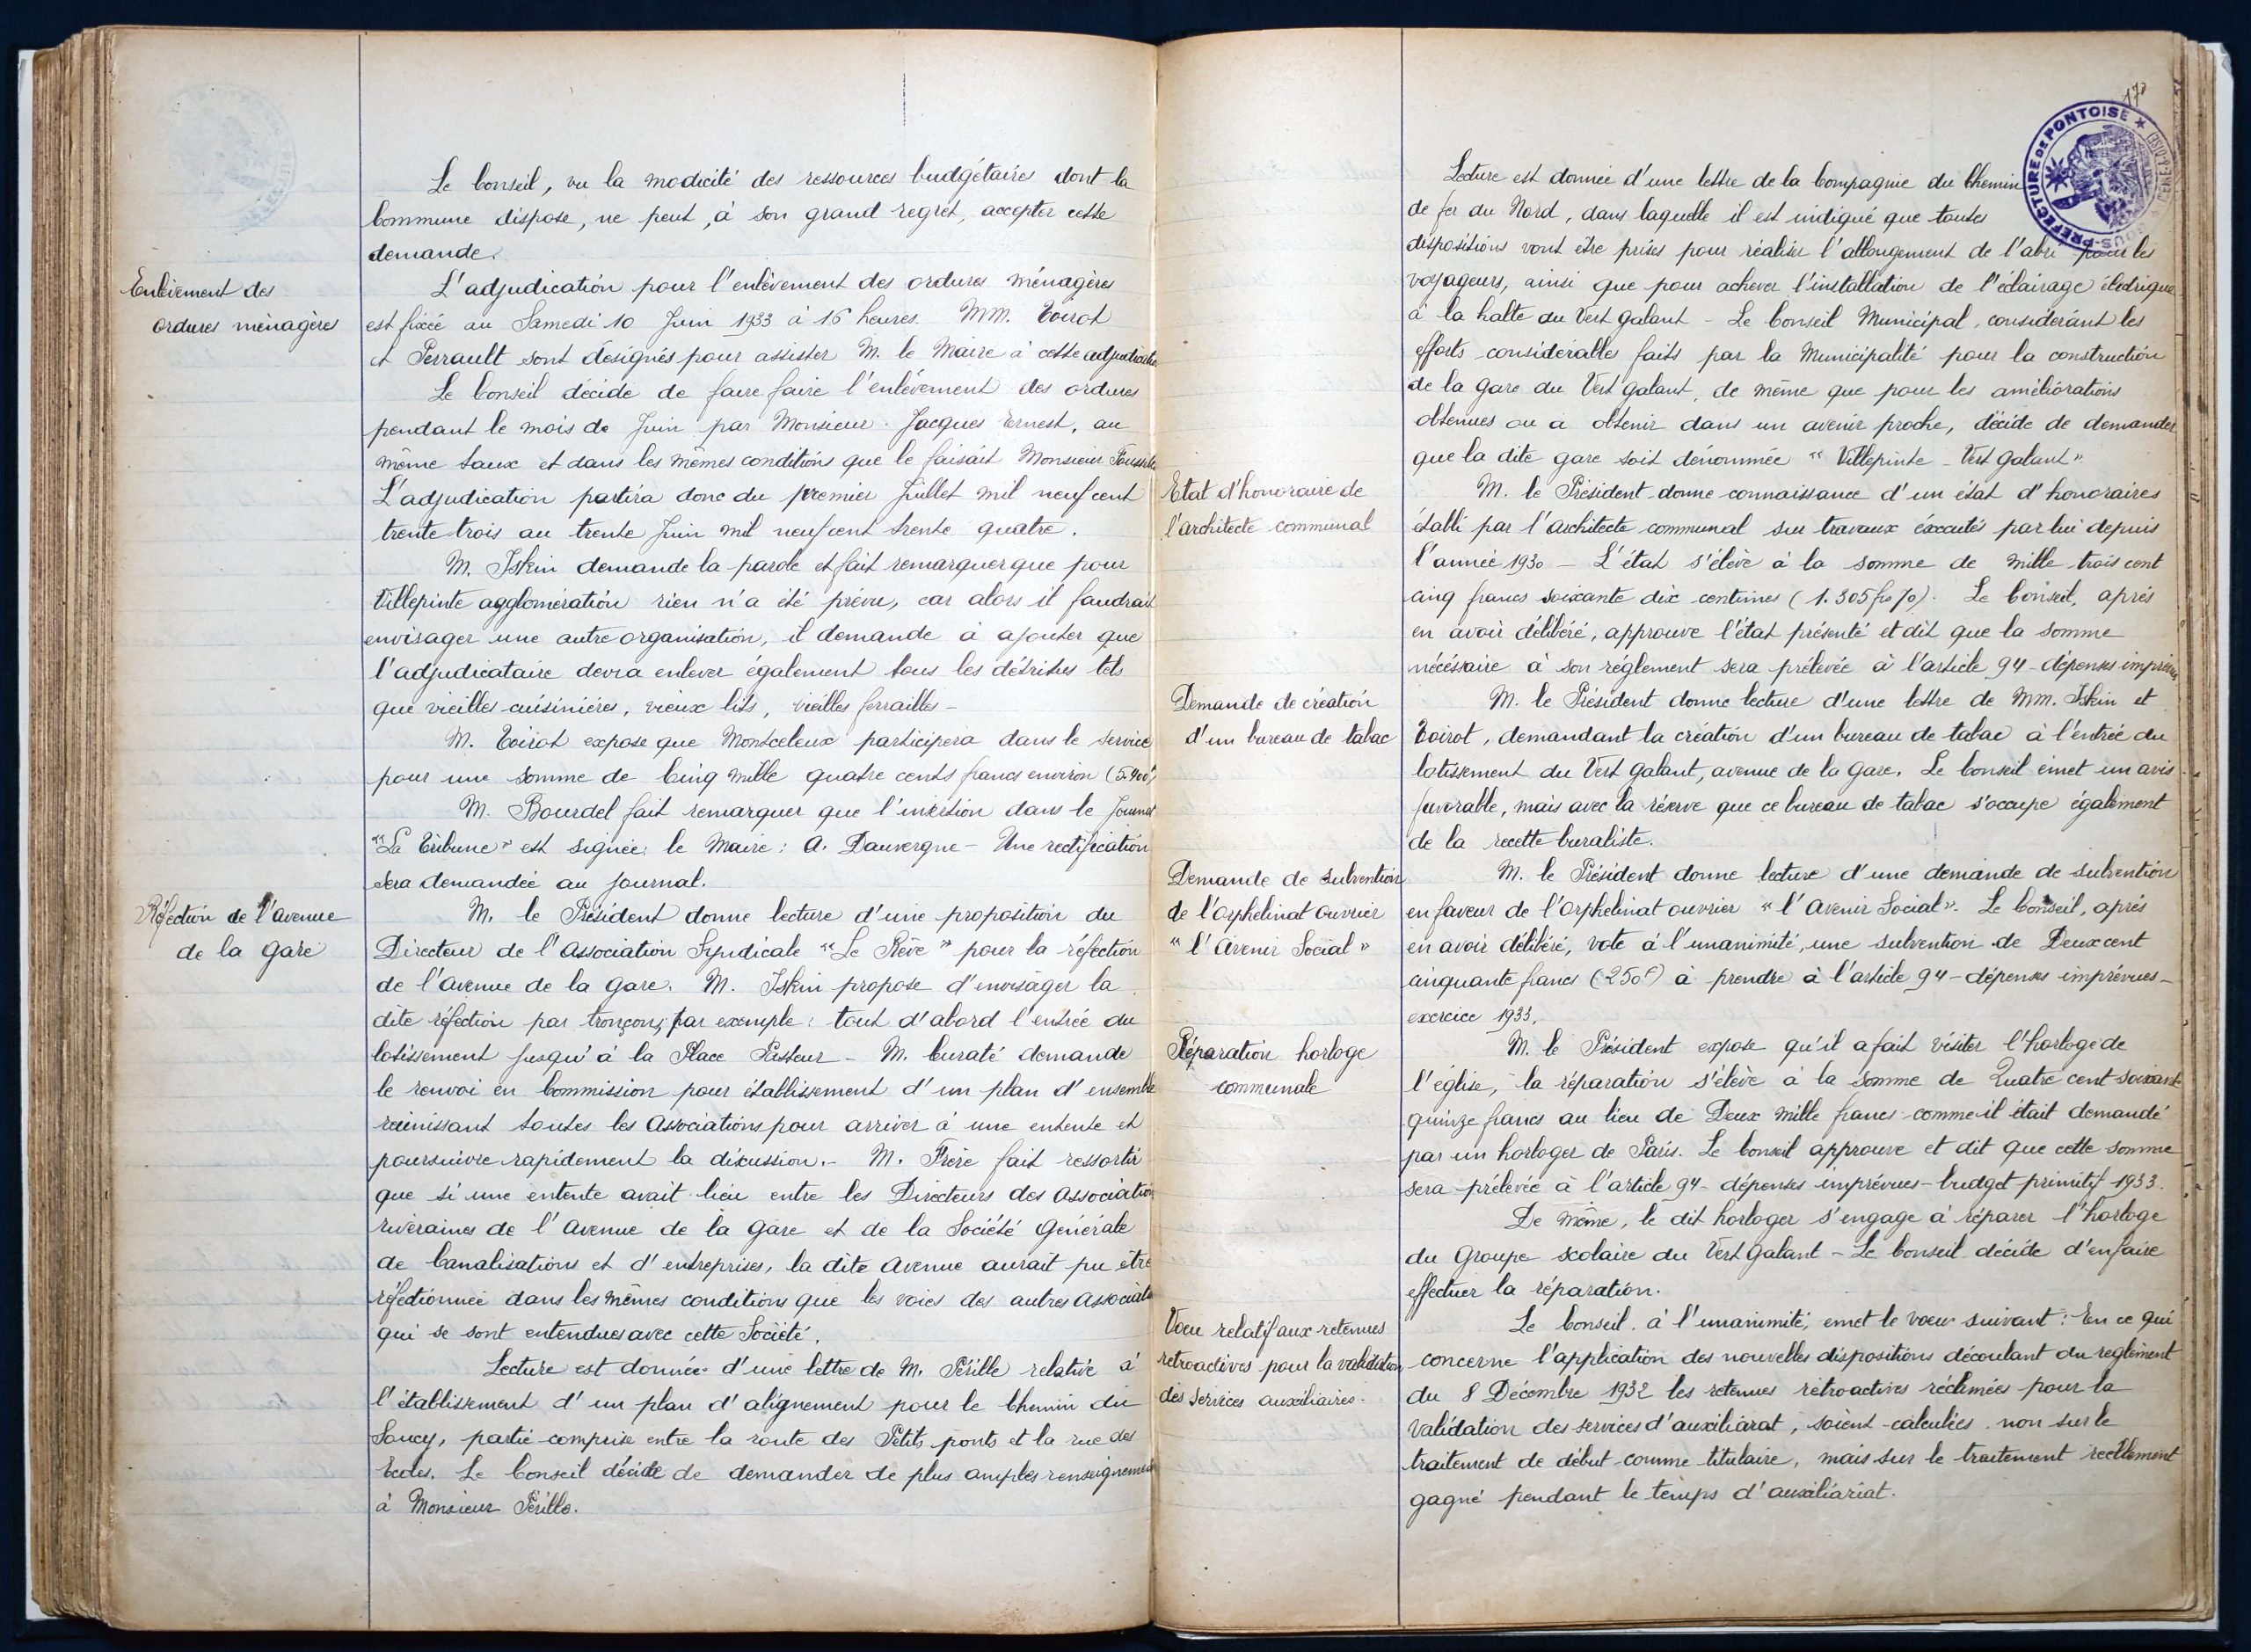 Le Conseil, vu la modicité des ressources budgétaires dont la
Commune dispose, ne peut, à son grand regret, accepter cette
demande.
Enlèvement des
ordures ménagères
L'adjudication pour l'enlèvement des ordures ménagères
est fixée au Samedi 10 Juin 1933 à 16 heures. MM. Toirot
et Perrault sont désignés pour assister M. le Maire à cette adjudication
Le Conseil décide de faire faire l'enlèvement des ordures
pendant le mois de Juin par Monsieur Jacques Ernest, au
même taux et dans les mêmes conditions que le faisait Monsieur
L'adjudication partira donc du premier Juillet mil neuf cent
trente trois au trente Juin mil neuf cent trente quatre.
M. Iskin demande la parole et fait remarquer que pour
Villepinte agglomération rien n'a été prévu, car alors il faudrait
envisager une autre organisation, il demande à ajouter que
l'adjudicataire devra enlever également tous les détritus tels
que vieilles cuisinières, vieux lits, vieilles ferrailles -
M. Toirot expose que Montceleux participera dans le service
pour une somme de Cinq mille quatre cents francs environ (5.400f)
M. Bourdel fait remarquer que l'insertion dans le Journal
"La Tribune" est signée: le Maire: A. Dauvergne - Une rectification
sera demandée au journal.
Réfection de l'avenue
de la gare
M. le Président donne lecture d'une proposition du
Directeur de l'Association Syndicale "Le Rêve" pour la réfection
de l'avenue de la gare. M. Iskin propose d'envisager la
dite réfection par tronçons, par exemple: tout d'abord l'entrée du
lotissement jusqu'à la Place Pasteur - M. Curaté demande
le renvoi en Commission pour établissement d'un plan d'ensemble
réunissant toutes les Associations pour arriver à une entente et
poursuivre rapidement la discussion. - M. Frère fait ressortir
que si une entente avait lieu entre les Directeurs des Association
riveraines de l'Avenue de la gare et de la Société Générale
de Canalisations et d'entreprises, la dite Avenue aurait pu être
réfectionnée dans les mêmes conditions que les voies des autres Associat
qui se sont entendues avec cette Société.
Lecture est donnée d'une lettre de M. Pérille relative à
l'établissement d'un plan d'alignement pour le Chemin du
Saucy, partie comprise entre la route des Petits ponts et la rue des
Ecoles. Le Conseil décide de demander de plus amples renseignements
à Monsieur Pérille.
170
SOUS-PREFECTURE DE PONTOISE
Lecture est donnée d'une lettre de la Compagnie du Chemin
de fer du Nord, dans laquelle il est indiqué que toutes
dispositions vont être prises pour réaliser l'allongement de l'abri pour les
voyageurs, ainsi que pour achever l'installation de l'éclairage électrique
à la halte du Vert galant - Le Conseil Municipal, considérant les
efforts considérables faits par la Municipalité pour la construction
de la gare du Vert galant, de même que pour les améliorations
obtenues ou à obtenir dans un avenir proche, décide de demander
que la dite gare soit dénommée "Villepinte - Vert galant".
Etat d'honoraire de
l'architecte communal
M. le Président donne connaissance d'un état d'honoraires
établi par l'architecte communal sur travaux éxecutés par lui depuis
l'année 1930 - L'état s'élève à la somme de mille trois cent
cinq francs soixante dix centimes (1.305frs70). Le Conseil, après
en avoir délibéré, approuve l'état présenté et dit que la somme
nécéssaire à son règlement sera prélevée à l'article 94 - dépenses imprévues
Demande de création
d'un bureau de tabac
M. le Président donne lecture d'une lettre de MM. Iskin et
Toirot, demandant la création d'un bureau de tabac à l'entrée du
lotissement du Vert galant, avenue de la gare. Le Conseil émet un avis
favorable, mais avec la réserve que ce bureau de tabac s'occupe également
de la recette buraliste.
Demande de subvention
de l'Orphelinat Ouvrier
"l'Avenir Social"
M. le Président donne lecture d'une demande de subvention
en faveur de l'Orphelinat ouvrier "l'Avenir Social". Le Conseil, après
en avoir délibéré, vote à l'unanimité, une subvention de Deux cent
cinquante francs (250f) à prendre à l'article 94 - dépenses imprévues -
exercice 1933.
Réparation horloge
communale
M. le Président expose qu'il a fait visiter l'horloge de
l'église, la réparation s'élève à la somme de Quatre cent soixante
quinze francs au lieu de Deux mille francs comme il était demandé
par un horloger de Paris. Le Conseil approuve et dit que cette somme
sera prélevée à l'article 94 - dépenses imprévues - budget primitif 1933.
De même, le dit horloger s'engage à réparer l'horloge
du groupe scolaire du Vert galant - Le Conseil décide d'en faire
effectuer la réparation.
Voeu relatif aux retenues
rétroactives pour la validation
des services auxiliaires.
Le Conseil à l'unanimité, emet le voeu suivant: En ce qui
concerne l'application des nouvelles dispositions découlant du reglement
du 8 Décembre 1932 les retenues rétroactives réclamées pour la
validation des services d'auxiliariat, soient calculées non sur le
traitement de début comme titulaire, mais sur le traitement réellement
gagné pendant le temps d'auxiliariat.